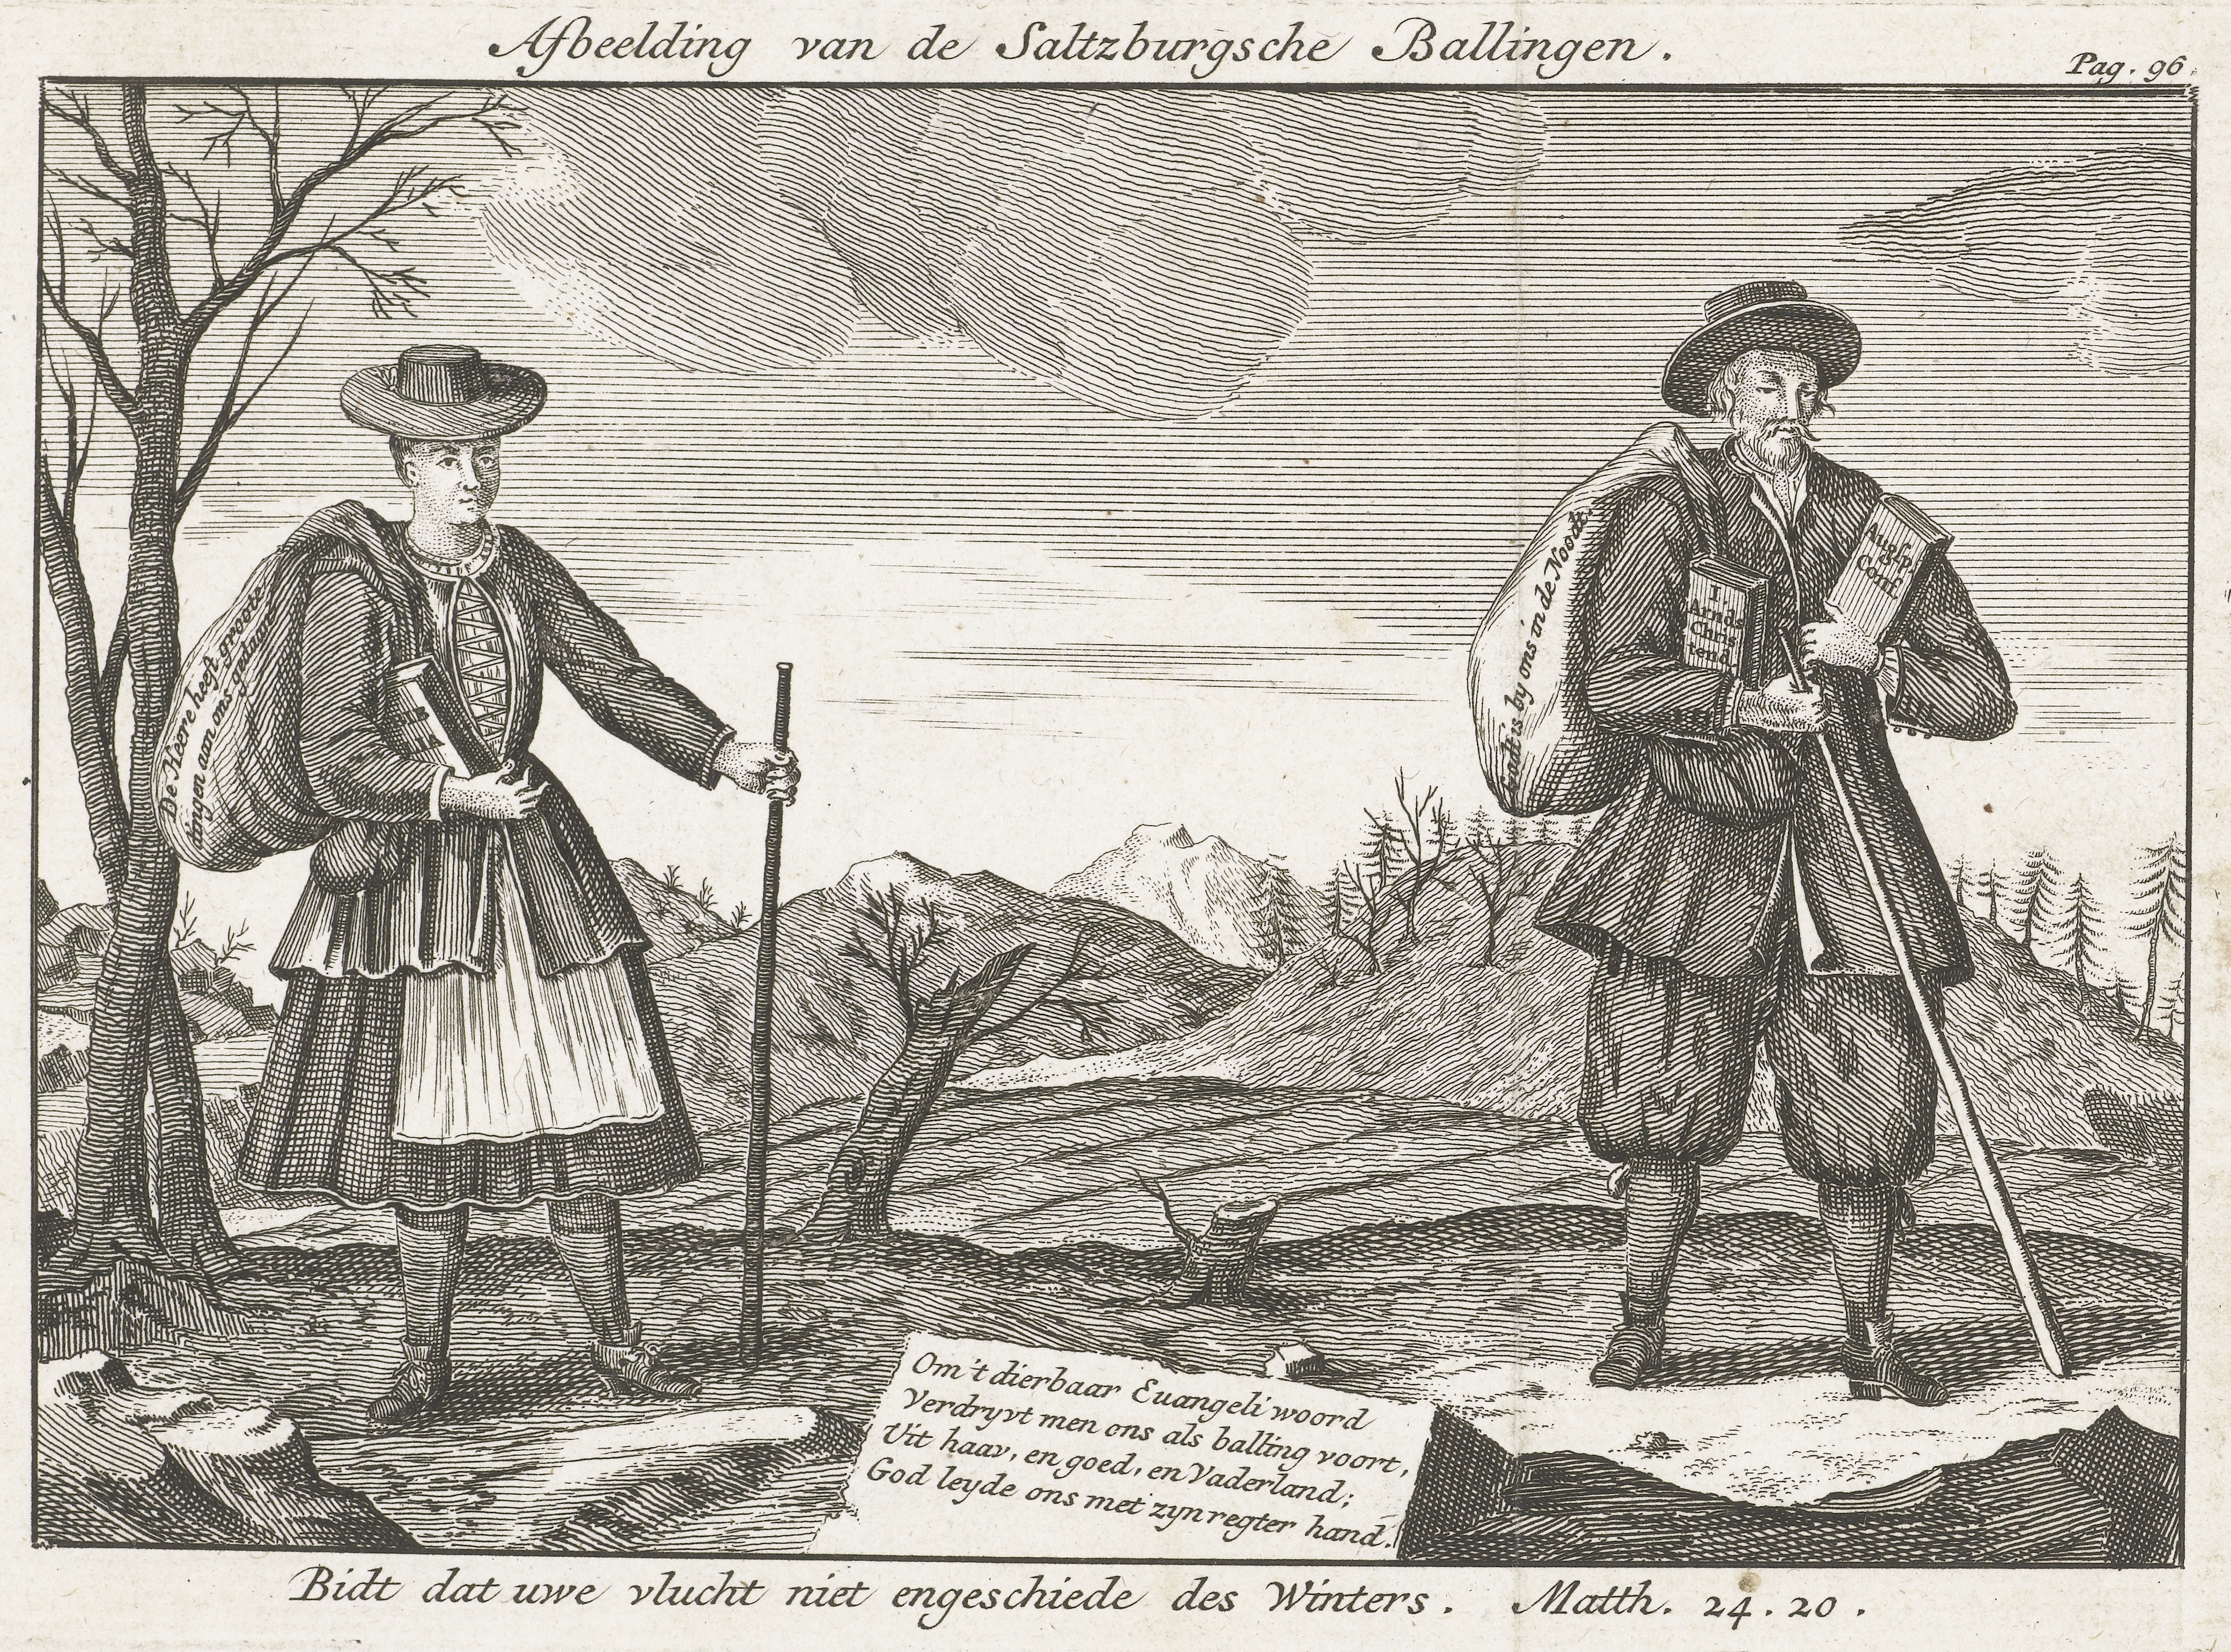 Afbeelding van de Saltzburgsche Ballingen.
Pag. 96.
De Heere heeft groote
dingen aan ons gedaan
BIB
LIA
Godt is by ons in de Noodt.
I
Arnd
Chri
tend
Augsp.
Conf
Om 't dierbaar Euangeli woord
Verdryvt men ons als balling voort,
Uit haav, en goed, en Vaderland;
God leyde ons met zyn regter hand.
Bidt dat uwe vlucht niet engeschiede des Winters. Matth. 24. 20.